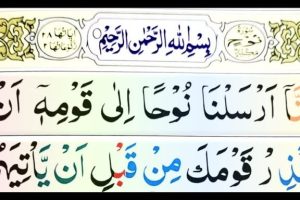 بِسْمِ اللهِ الرَّحْمٰنِ الرَّحِيْمِ
اَرْسَلْنَا نُوْحًا اِلٰى قَوْمِهٖۤ اَنْ
قَوْمَكَ مِنْ قَبْلِ اَنْ